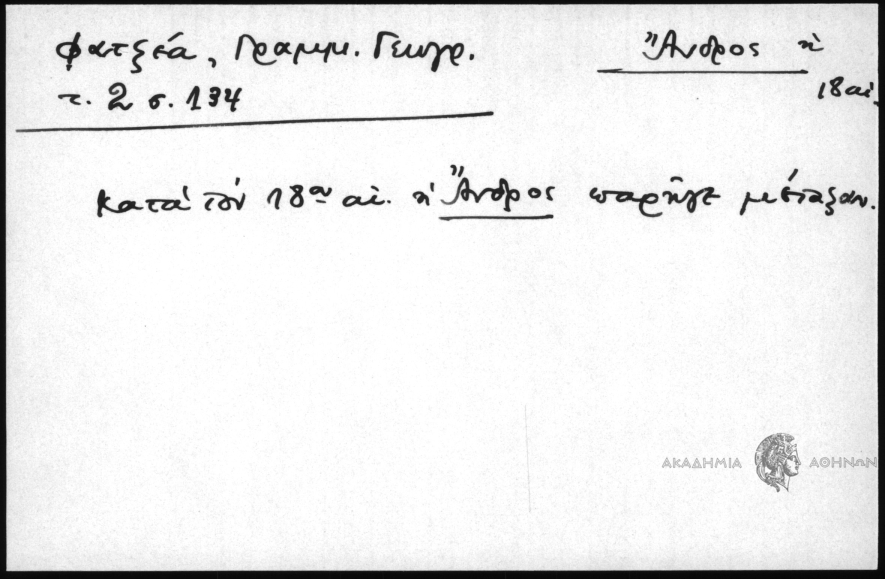 Φατζεά, Γραμμ. Γεωγρ.
τ. 2 σ. 134
Ἄνδρος ἡ
18 αἰ.
Κατὰ τὸν 18ον αἰ. ἡ Ἄνδρος παρῆγε μέταξαν.
ΑΚΑΔΗΜΙΑ ΑΘΗΝΩΝ